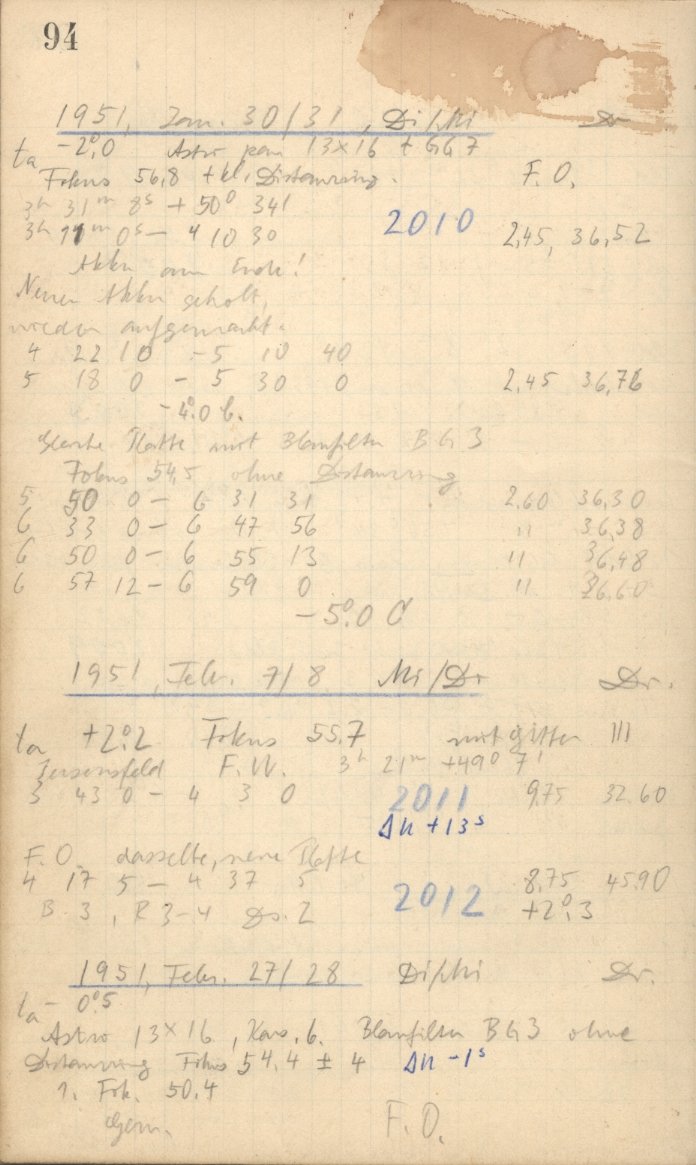 94
1951, Jan. 30/31, Di/Mi Dr
ta -2°,0 Astro pan 13×16 + GG 7
Fokus 56,8 + kl. Distanzring. F. O.
3h 31m 8s + 50° 34'
3h 11m 0s - 4 10 30 2010 2,45, 36,52
Akku am Ende!
Neuen Akku geholt,
wieder aufgemacht.
4 22 10 - 5 10 40
5 18 0 - 5 30 0 2,45 36,76
-4°,0 C.
Gleiche Platte mit Blaufilter BG 3
Fokus 54,5 ohne Distanzring
5 50 0 - 6 31 31 2.60 36,30
6 33 0 - 6 47 56 " 36,38
6 50 0 - 6 55 13 " 36,48
6 57 12 - 6 59 0 " 36,60
-5°,0 C
1951, Febr. 7/8 Mi/Dr Dr.
ta +2°,2 Fokus 55,7 mit Gitter III
F. W. 3h 21m +49° 7'
3 43 0 - 4 3 0 2011 9,75 32.60
Δu +13s
F. O. dasselbe, neue Platte
4 17 5 - 4 37 5 2012 8,75 45.90
B. 3, R 3-4 Ds. 2 +2°,3
1951, Febr. 27/28 Di/Mi Dr.
ta - 0°,5
Astro 13×16, Kas. 6. Blaufilter BG 3 ohne
Distanzring Fokus 54,4 ± 4 Δu -1s
1. Fok. 50.4
Gem. F. O.